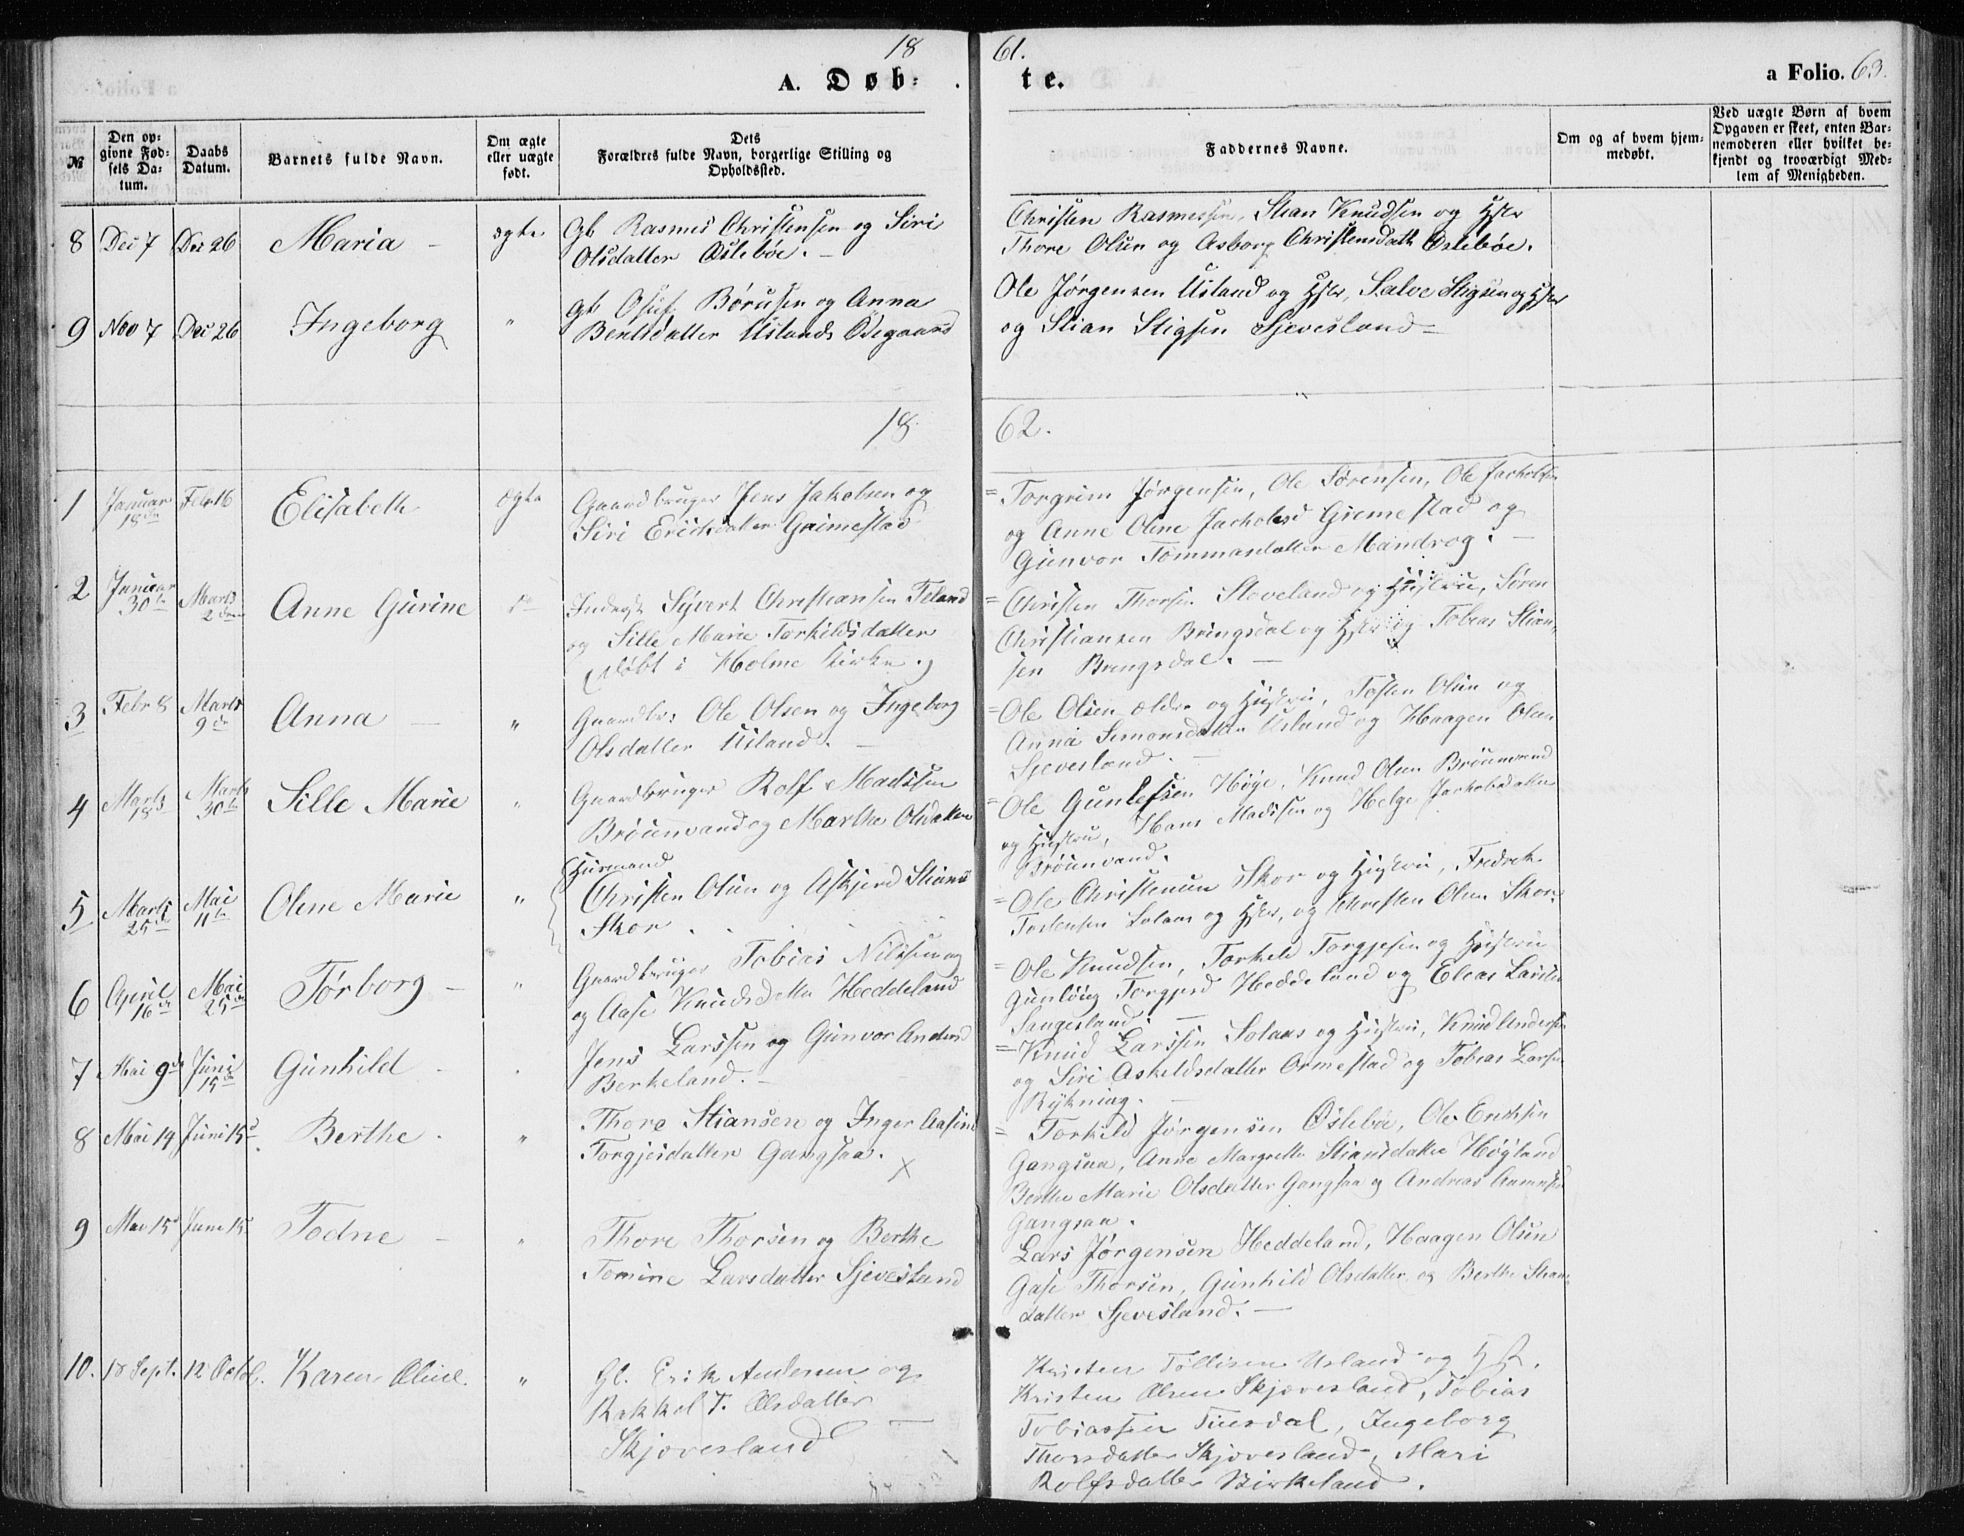 18 61.
A. Døb: te. a Folio. 63.
№
Den op-
givne Fød-
sels Da-
tum.
Daabs
Datum.
Barnets fulde Navn.
Om ægte
eller uægte
født.
Dets
Forældres fulde Navn, borgerlige Stilling og
Opholdssted.
Faddernes Navne.
Om og af hvem hjem-
medøbt.
Ved uægte Børn af hvem
Opgaven er skeet, enten Bar-
nemoderen eller hvilket be-
kjendt og troværdigt Med-
lem af Menigheden.
8 Dec 7 Dec 26 Maria - ægte
Gb Rasmus Christensen og Siri
Olsdatter Øslebøe. -
Christen Rasmussen, Stian Knudsen og Hstr
Thore Olsen og Asborg Christensdatt Øslebøe.
9 Nov 7 Dec 26 Ingeborg "
gb Osuf Børusen og Anna
Bentsdatter Uslands Ødegaard
Ole Jørgensen Usland og Hstr, Salve Stigsen og Hstr
og Stian Stigsen Sjevesland -
18 62.
1 Januar 18de Febr 16 Elisabeth ægte
Gaardbruger Jens Jakobsen og
Siri Ericksdatter Greimestad
= Torgrim Jørgensen, Ole Sørensen, Ole
og Anne Oline Griemestad og
Gunvor Tommasdatter Mandrog. -
2 Januar 30te Marts 2den Anne Gurine
Sÿvert Christiansen Feland
og Sille Marie Torkildsdatter
(døbt i Holme Kirke.)
= Christen Thorsen Stoveland og Hustrue, Søren
Christiansen Bringsdal og Hstr og Tobias Stian-
sen Bringsdal. -
3 Febr 8 Marts 9de Anna - "
Gaardbr: Ole Olsen og Ingeborg
Olsdatter Usland. -
= Ole Olsen ældre og Hustrue, Tosten Olsen og
Anna Simonsdatter Usland og Haagen Olsen
Sjevesland. -
4 Marts 18de Marts 30te Sille Marie "
Gaardbruger Rolf Madssen
Brøunvand og Marthe Olsdatter
= Ole Gunlefsen Høye, Knud Olsen Brøunvand
og Hustrue, Hans Madssen og Helge Jachobsdatter
Brøunvand.
5 Marts 25de Mai 11te Olene Marie "
Huusmand
Christen Olsen og Askjerd Stiansd
Skor
= Ole Christensen Skor og Hustrue, Fredrek
Torstensen Solaas og Hstr, og Christen Olsen Skor.
6 April 16de Mai 25de Tørborg - "
Gaardbruger Tobias Nilssen og
og Aase Knudsdatter Heddeland
= Ole Knudsen, Torkeld Torgjesen og Hustrue
Gunløug Torgjesd Heddeland og Elias Larsen
Saugesland. -
7 Mai 9de Juni 15de Gunhild
Jens Larssen og Gunvor Andersd
Berkeland. -
= Knud Larssen Solaas og Hustrue, Knud Andersen
og Siri Askeldsdatter Ormestad og Tobias Larsen
Rykning. -
8 Mai 19 Juni 15d Berthe. "
Thore Stiansen og Inger Aasine
Torgjesdatter Gangsaa.
X
= Torkild Jørgensen Øslebø, Ole Eriksen
Gangsaa, Anne Margrethe Stiansdatter Høgland
Berthe Marie Olsdatter Gangsaa og Andreas
Gangsaa.
9 Mai 15d Juni 15d Todne - "
Thore Thorsen og Berthe
Tomine Larsdatter Sjevesland
Lars Jørgensen Heddeland, Haagen Olsen
Gase Thorsen, Gunhild Olsdatter og Berthe Stians
datter Sjevesland. -
10. 18 Sept. 12 Octob. Karen Oline. "
Gb. Erik Andersen og
Rakkel T. Olsdatter
Skjøvesland
Kristen Tellisen Usland og Hst.
Kristen Olsen Skjøvesland, Tobias
Tobiassen Tuesdal, Ingeborg
Thorsdatter Skjøvesland, Mari
Rolfsdatter Birkeland.